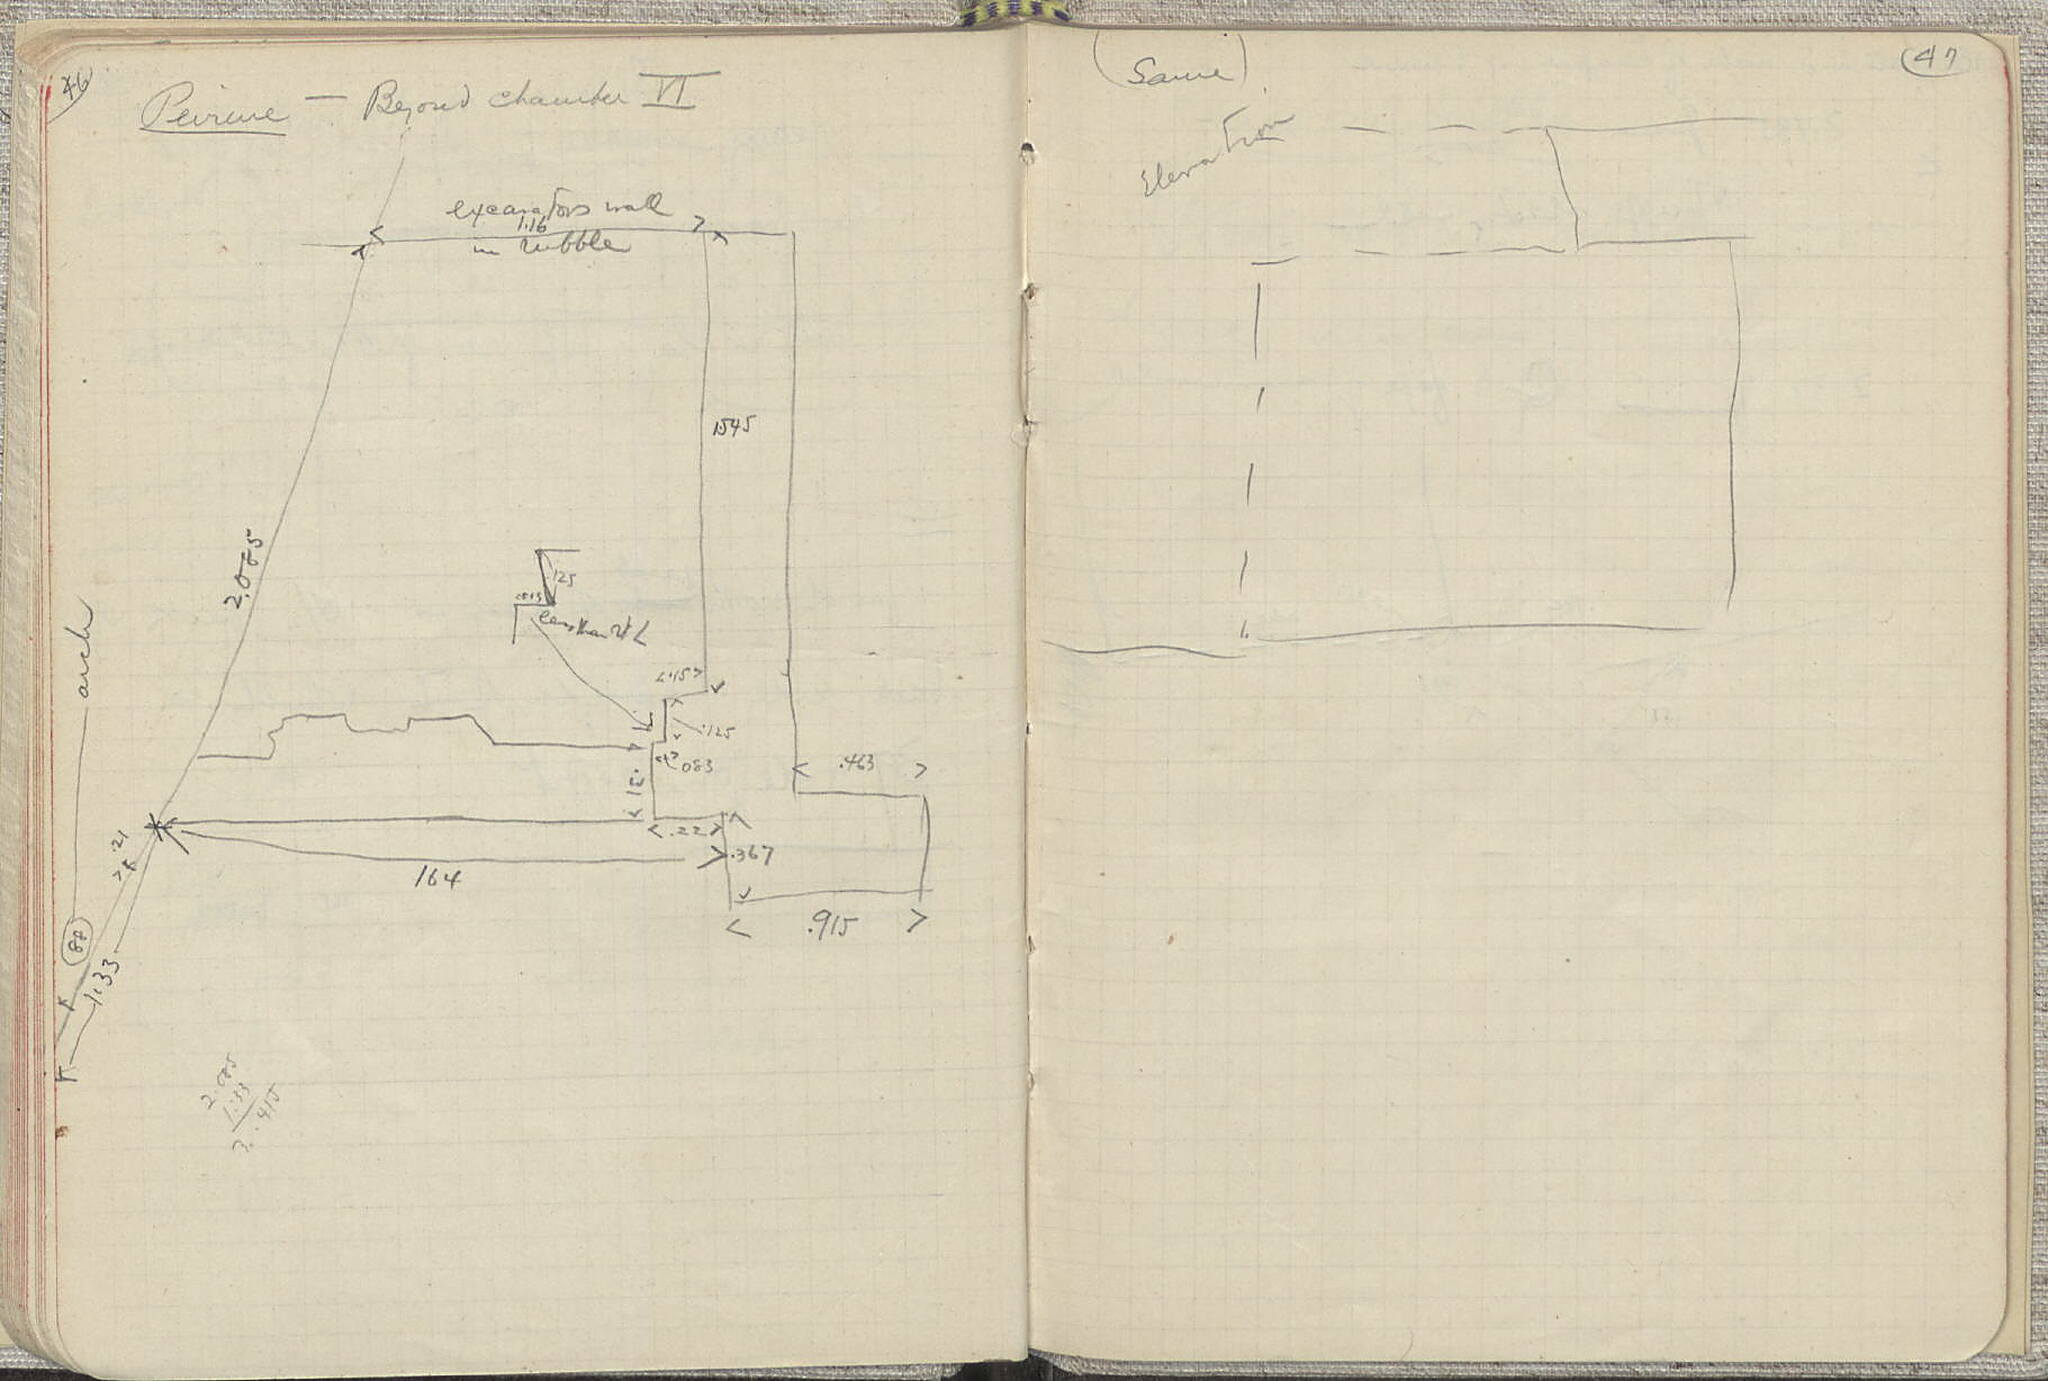 46
Peirene — Beyond Chamber VI
excavators wall
1.16
in rubble
1.545
2.085
.125
less than rt L
.125
.083
.31
.463
.22
.367
1.64
.915
arch
.21
.88
1.33
2.085
1.33
3.415
(Same)
47
Elevation